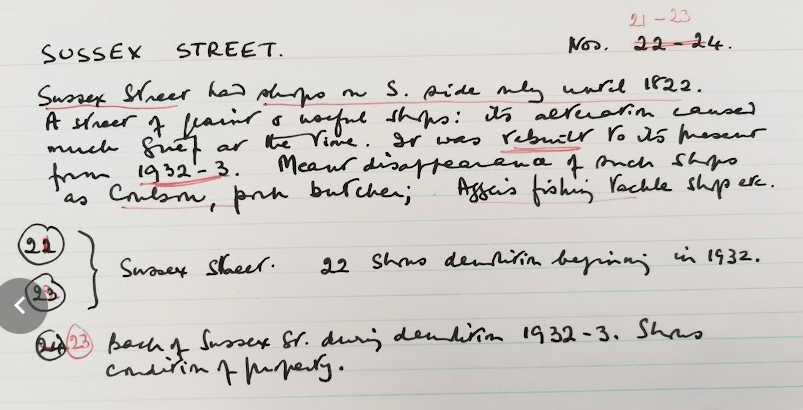 21 - 23
SUSSEX STREET. Nos. 22 - 24.
Sussex Street had shops on S. side only until 1822.
A street of quaint & useful shops: its alteration caused
much grief at the time. It was rebuilt to its present
from 1932-3. Meant disappearance of such shops
as Coulson, pork butcher; fishing tackle shop etc.
22
23
Sussex Street. 22 Shows demolition beginning in 1932.
24 23 Back of Sussex St. during demolition 1932-3. Shows
condition of property.